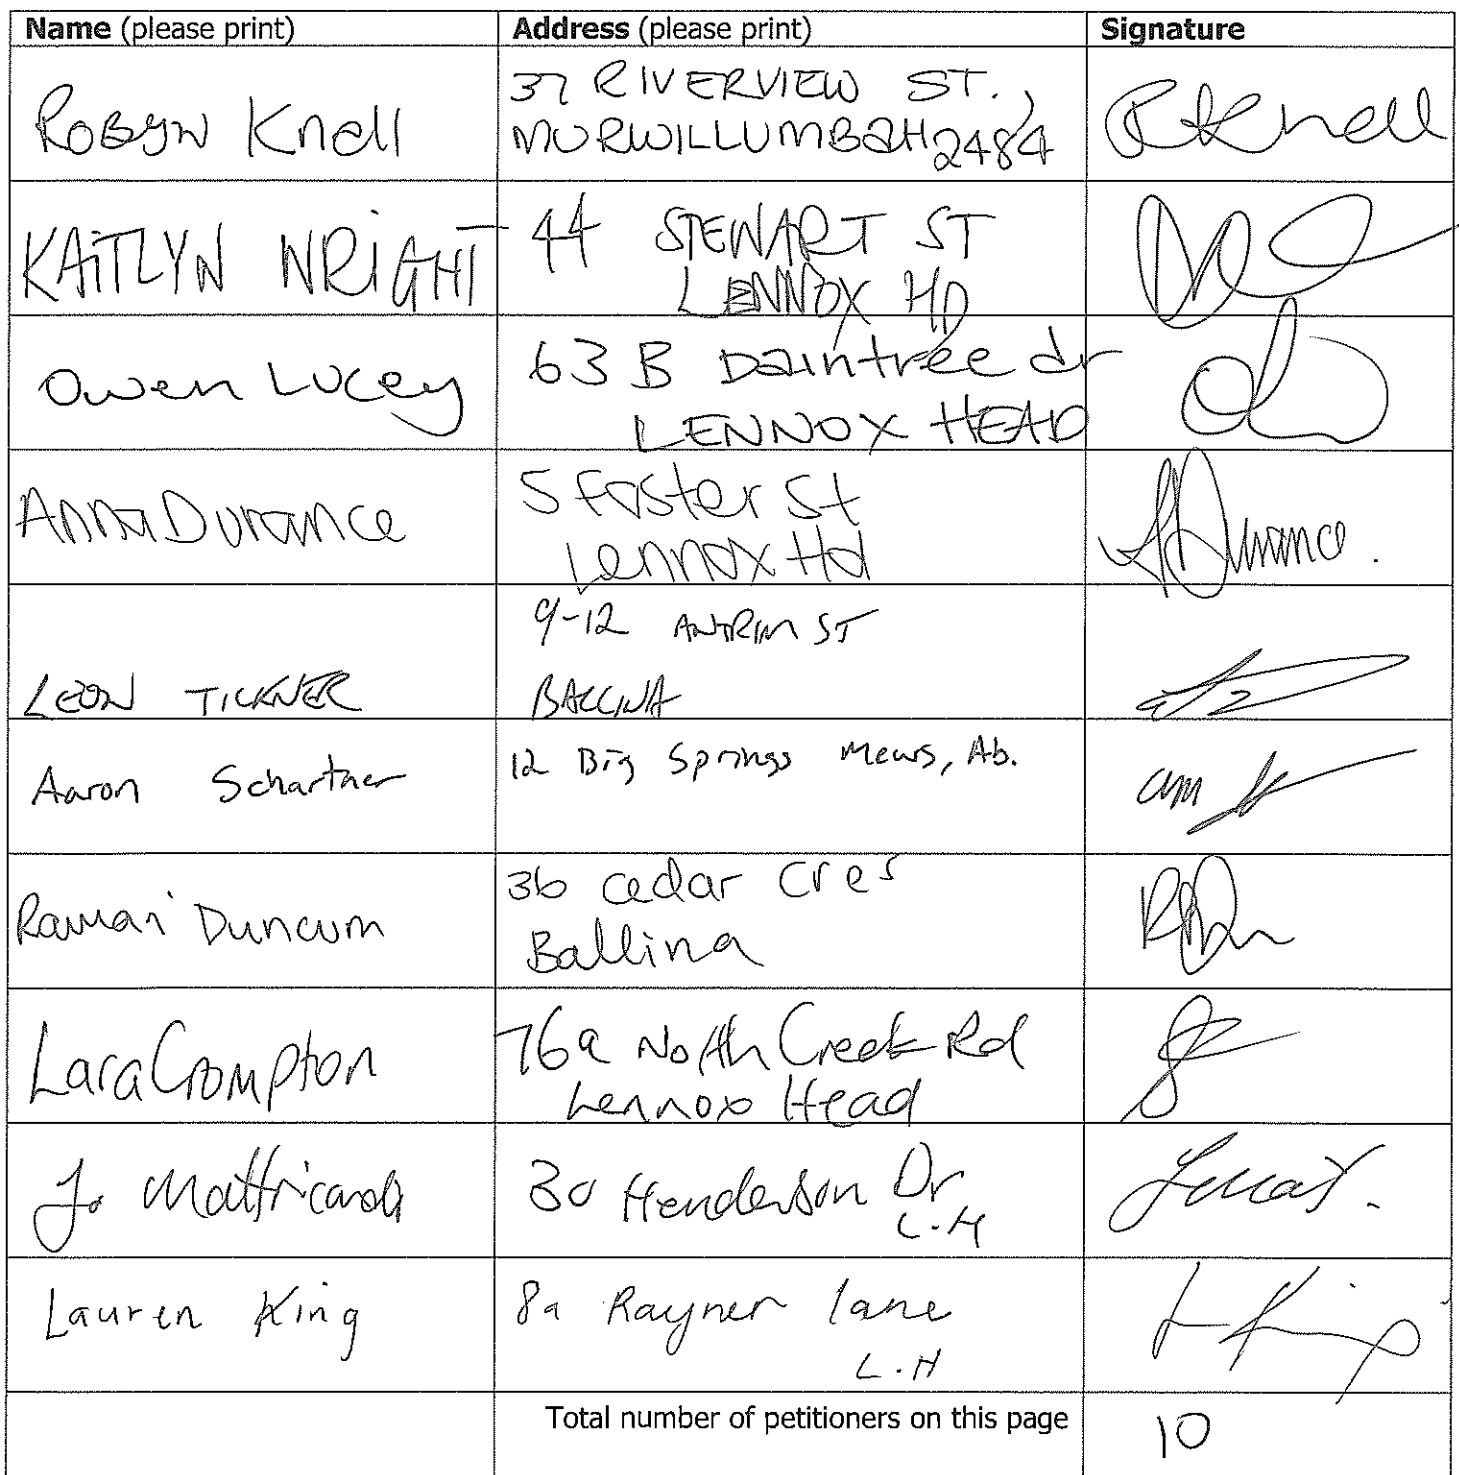 Name (please print) Address (please print) Signature
Robyn Knell 37 RIVERVIEW ST.,
MURWILLUMBAH 2484 RKnell
KAITLYN WRIGHT 44 STEWART ST
LENNOX HD
Owen Lucey 63 B Daintree dr
LENNOX HEAD
Anna Durance 5 Foster St
Lennox Hd ADurance.
LEON TICKNER 9-12 ANTRIM ST
BALLINA
Aaron Schartner 12 Big Springs Mews, Ab.
Ramari Duncum 36 cedar cres
Ballina
Lara Crompton 76a North Creek Rd
Lennox Head
Jo Mattricardi 30 Henderson Dr
L.H
Lauren King 8a Rayner lane
L.H L King
Total number of petitioners on this page 10